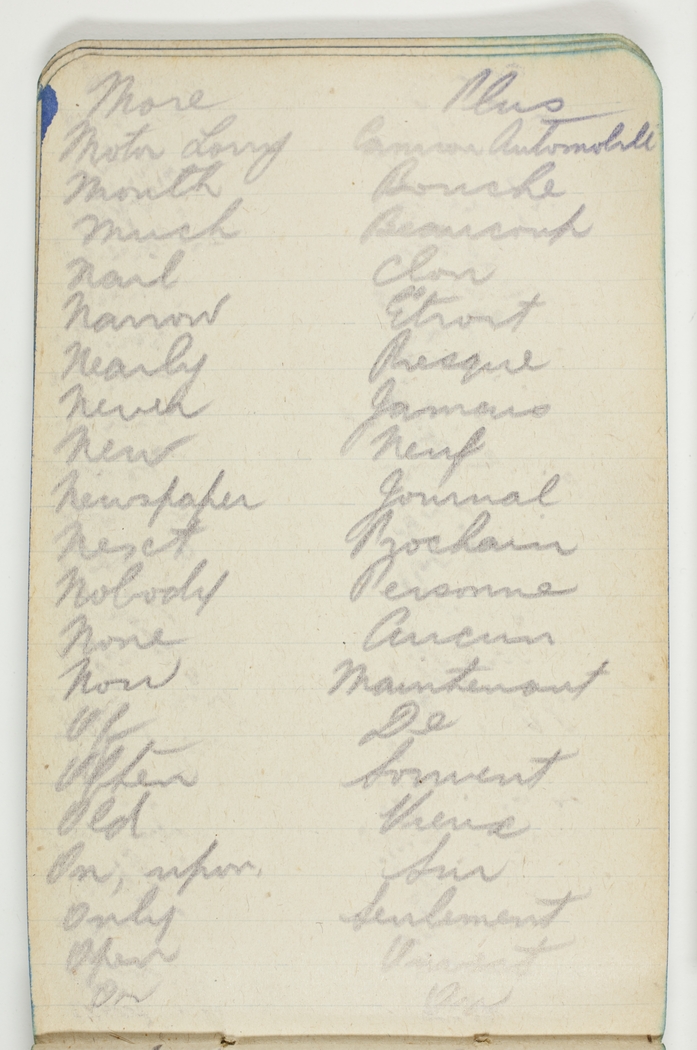 More Plus
Motor Lorry Camion Automobile
Mouth Bouche
Much Beaucoup
Nail Clou
Narrow Etroit
Nearly Presque
Never Jamais
New Neuf
Newspaper Journal
Next Prochain
Nobody Personne
None Aucun
Now Maintenant
Of De
Often Souvent
Old Vieux
On, upon. Sur
Only Seulement
Open Ouvert
Or Ou